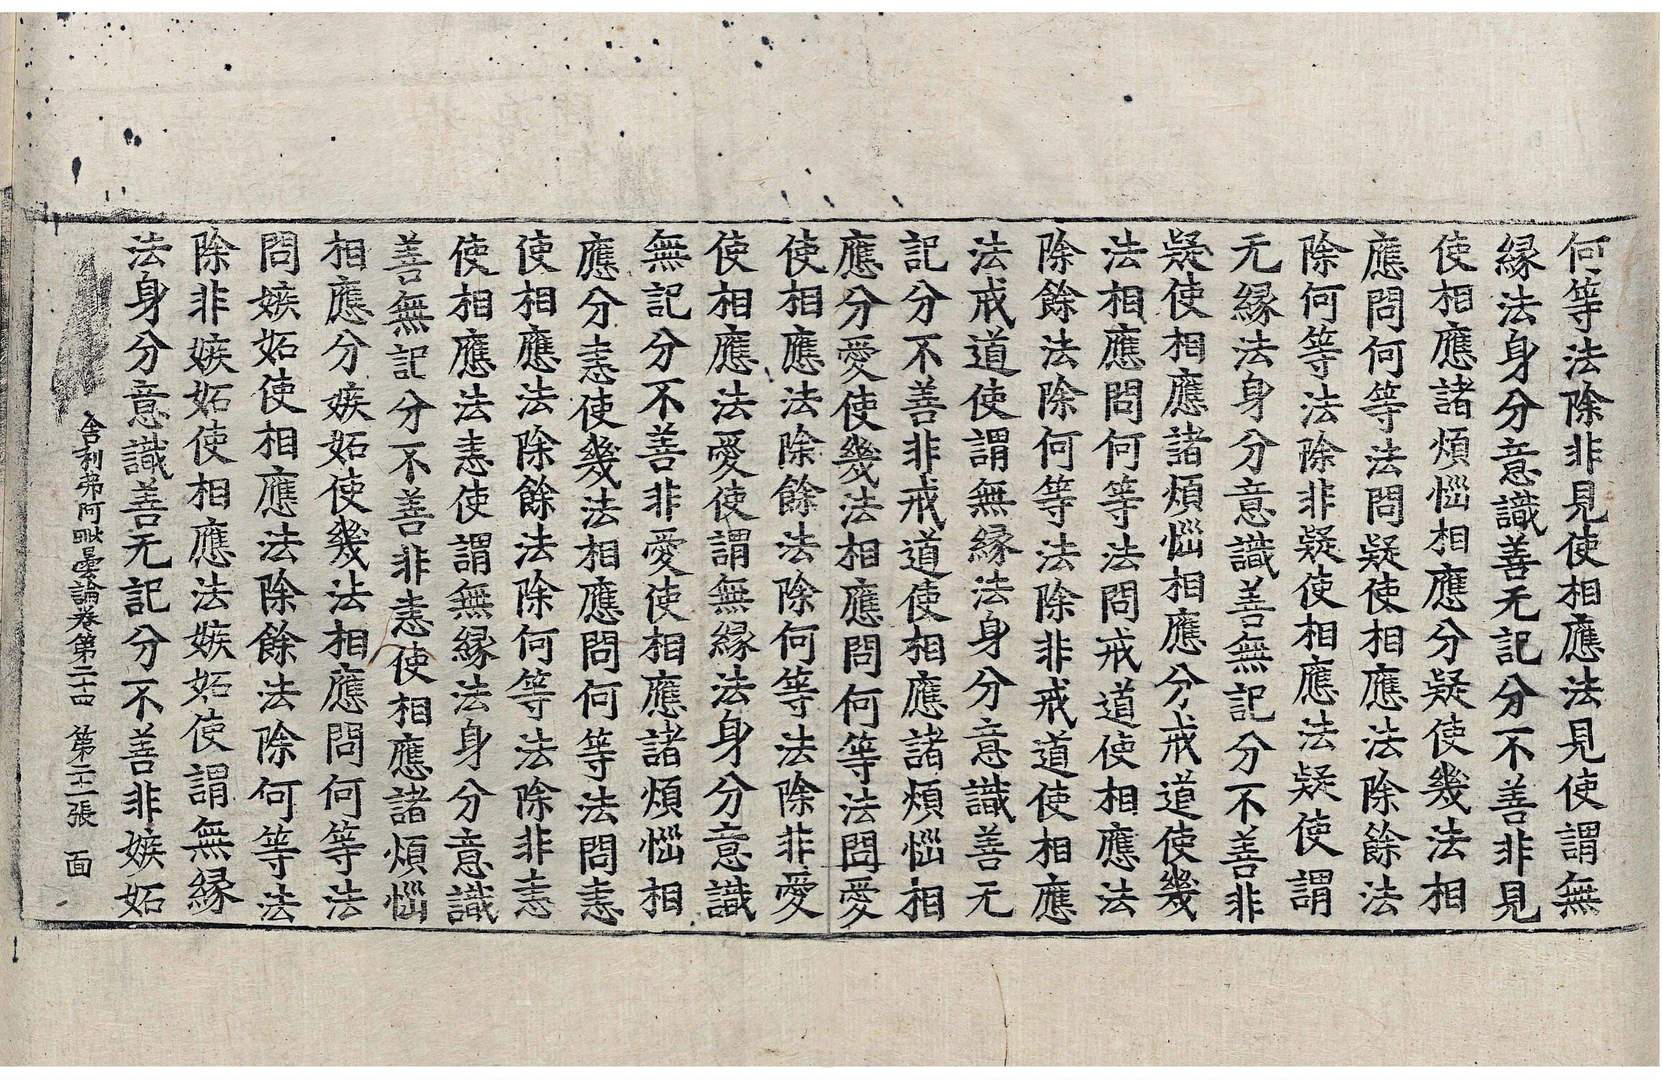 何等法除非見使相應法見使謂無
縁法身分意識善无記分不善非見
使相應諸煩惱相應分疑使幾法相
應問何等法問疑使相應法除餘法
除何等法除非疑使相應法疑使謂
无縁法身分意識善無記分不善非
疑使相應諸煩惱相應分戒道使幾
法相應問何等法問戒道使相應法
除餘法除何等法除非戒道使相應
法戒道使謂無縁法身分意識善无
記分不善非戒道使相應諸煩惱相
應分愛使幾法相應問何等法問愛
使相應法除餘法除何等法除非愛
使相應法愛使謂無縁法身分意識
無記分不善非愛使相應諸煩惱相
應分恚使幾法相應問何等法問恚
使相應法除餘法除何等法除非恚
使相應法恚使謂無縁法身分意識
善無記分不善非恚使相應諸煩惱
相應分嫉妬使幾法相應問何等法
問嫉妬使相應法除餘法除何等法
除非嫉妬使相應法嫉妬使謂無縁
法身分意識善无記分不善非嫉妬
舍利弗阿毗曇論卷第二十四 第二十二張 面